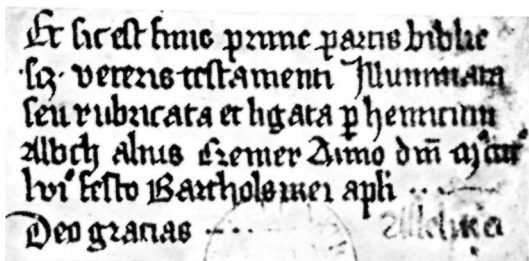 Et sic est finis prime partis biblie
·sz· veteris testamenti Illuminata
seu rubricata et ligata p henricum
Albch alius Cremer Anno dm̄
lviº festo Bartholomei apli ····
Deo gracias ····· Alleluja